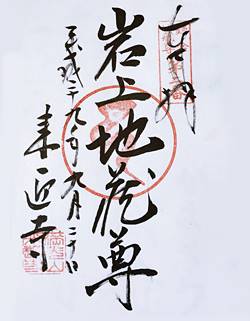 奉拝
岩上地蔵尊
平成二十九年九月二十日
来迎寺